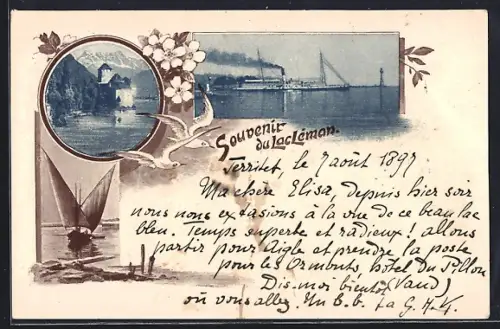 Souvenir
du Lac Léman.
Territet, le 7 août 1897
Ma chère Elisa, depuis hier soir
nous nous extasions à la vue de ce beau lac
bleu. Temps superbe et radieux! allons
partir pour Aigle et prendre la poste
pour les Ormonts, hôtel du Pillon
(Vaud)
Dis-moi bientôt
où vous allez. Un b.b. ta G. H.